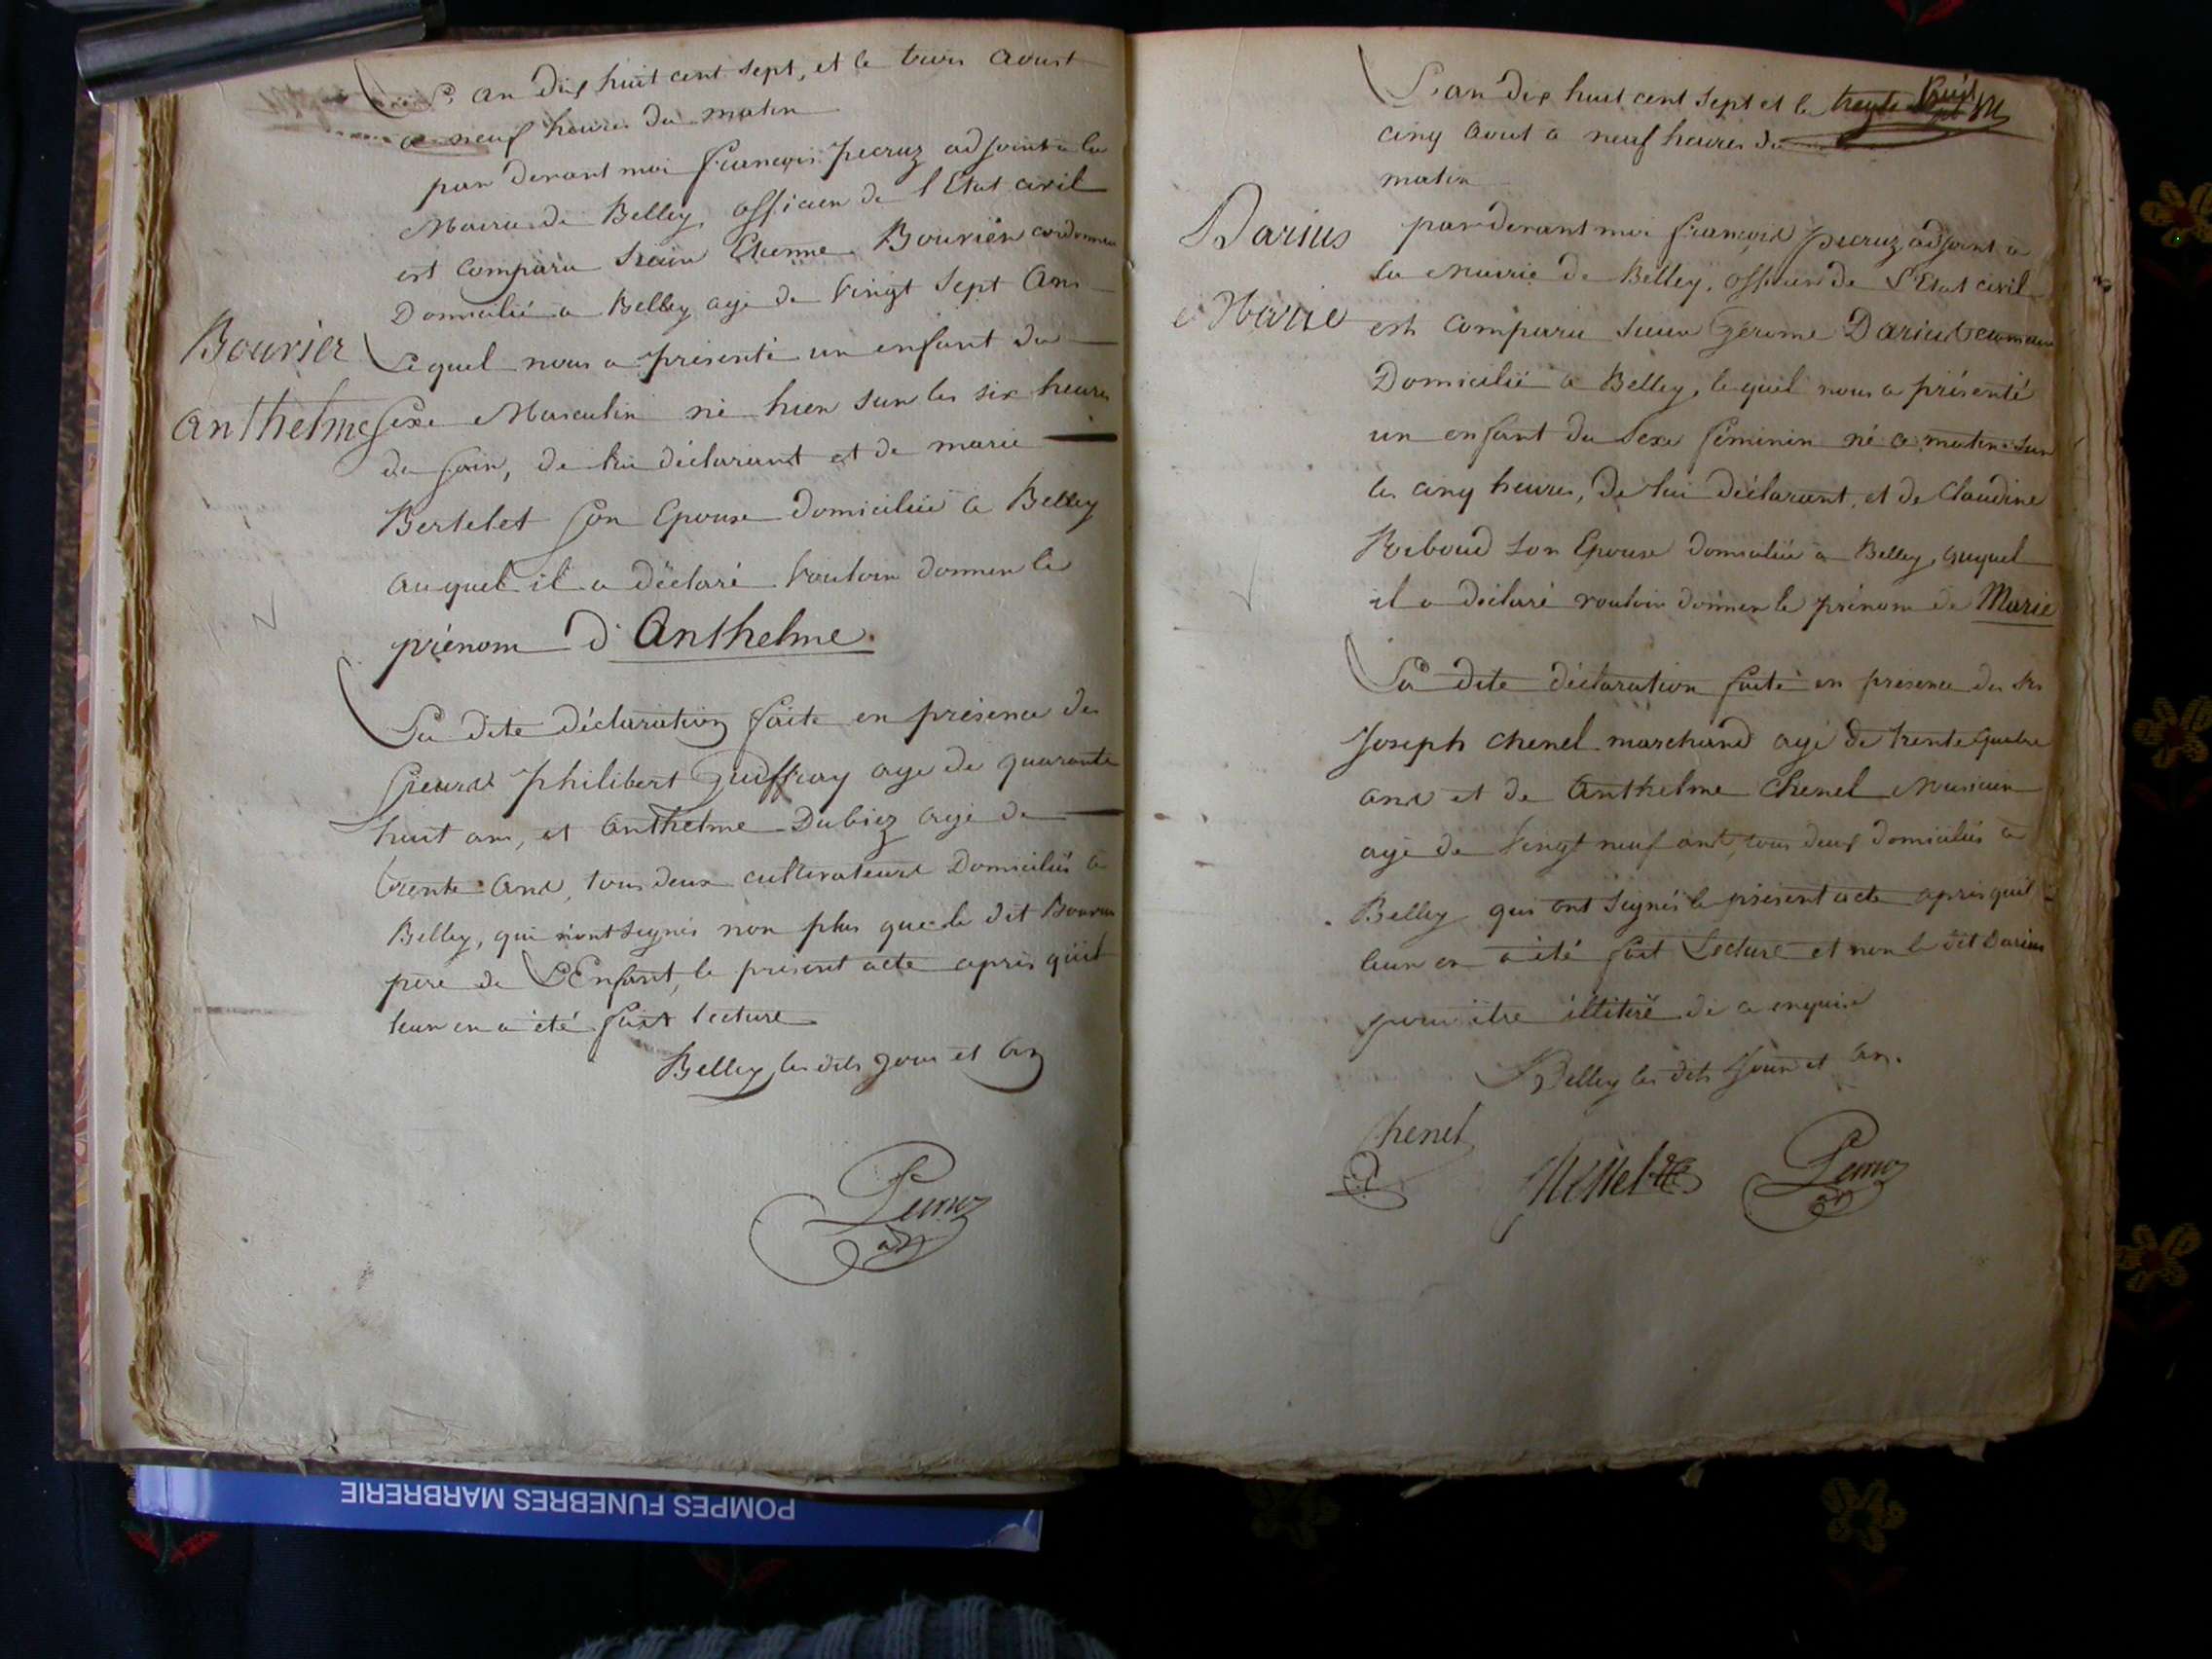 L'an dix huit cent sept, et le trois Aoust
a neuf heures du matin
par devant moi françois Pecruz adjoint a la
Mairie de Belley, officier de l'Etat civil
est comparu Sieur Etienne Bouvier cordonnier
Domicilié a Belley agé de vingt sept Ans
Bouvier
Lequel nous a présenté un enfant du
Anthelme
Sexe Masculin né hier sur les six heures
du soir, de lui déclarant et de marie
Bertelet son Epouse domiciliée a Belley
auquel il a déclaré vouloir donner le
prénom d'Anthelme.
La dite déclaration faite en présence des
Sieurs Philibert Guiffray agé de quarante
huit ans, et Anthelme Dubiez agé de
trente Ans, tous deux cultivateurs Domiciliés a
Belley, qui n'ont signés non plus que le dit Bouvier
père de L'Enfant, le présent acte apres qu'il
leur en a été fait lecture
Belley les dits jour et an
Pecruz
adj
L'an dix huit cent sept et le
cinq Aout a neuf heures du
matin
Darius
par devant moi françois Pecruz adjoint a
la Mairie de Belley, officier de L'Etat civil
Marie
est comparu Sieur Gérome Darius
Domicilié a Belley, lequel nous a présenté
un enfant du Sexe féminin né ce matin sur
les cinq heures, de lui déclarant, et de Claudine
Riboud son Epouse domiciliée a Belley, auquel
il a déclaré vouloir donner le prénom de Marie
La dite déclaration faite en présence des Srs
Joseph Chenel marchand agé de trente quatre
ans et de Anthelme Chenel Musicien
agé de vingt neuf ans, tous deux domiciliés a
Belley qui ont signés le présent acte apres qu'il
leur en a été fait Lecture et non le dit Darius
pour être illitéré de ce enquis
Belley les dits jour et an.
Chenel
Chenel
Pecruz
adj
POMPES FUNEBRES MARBRERIE